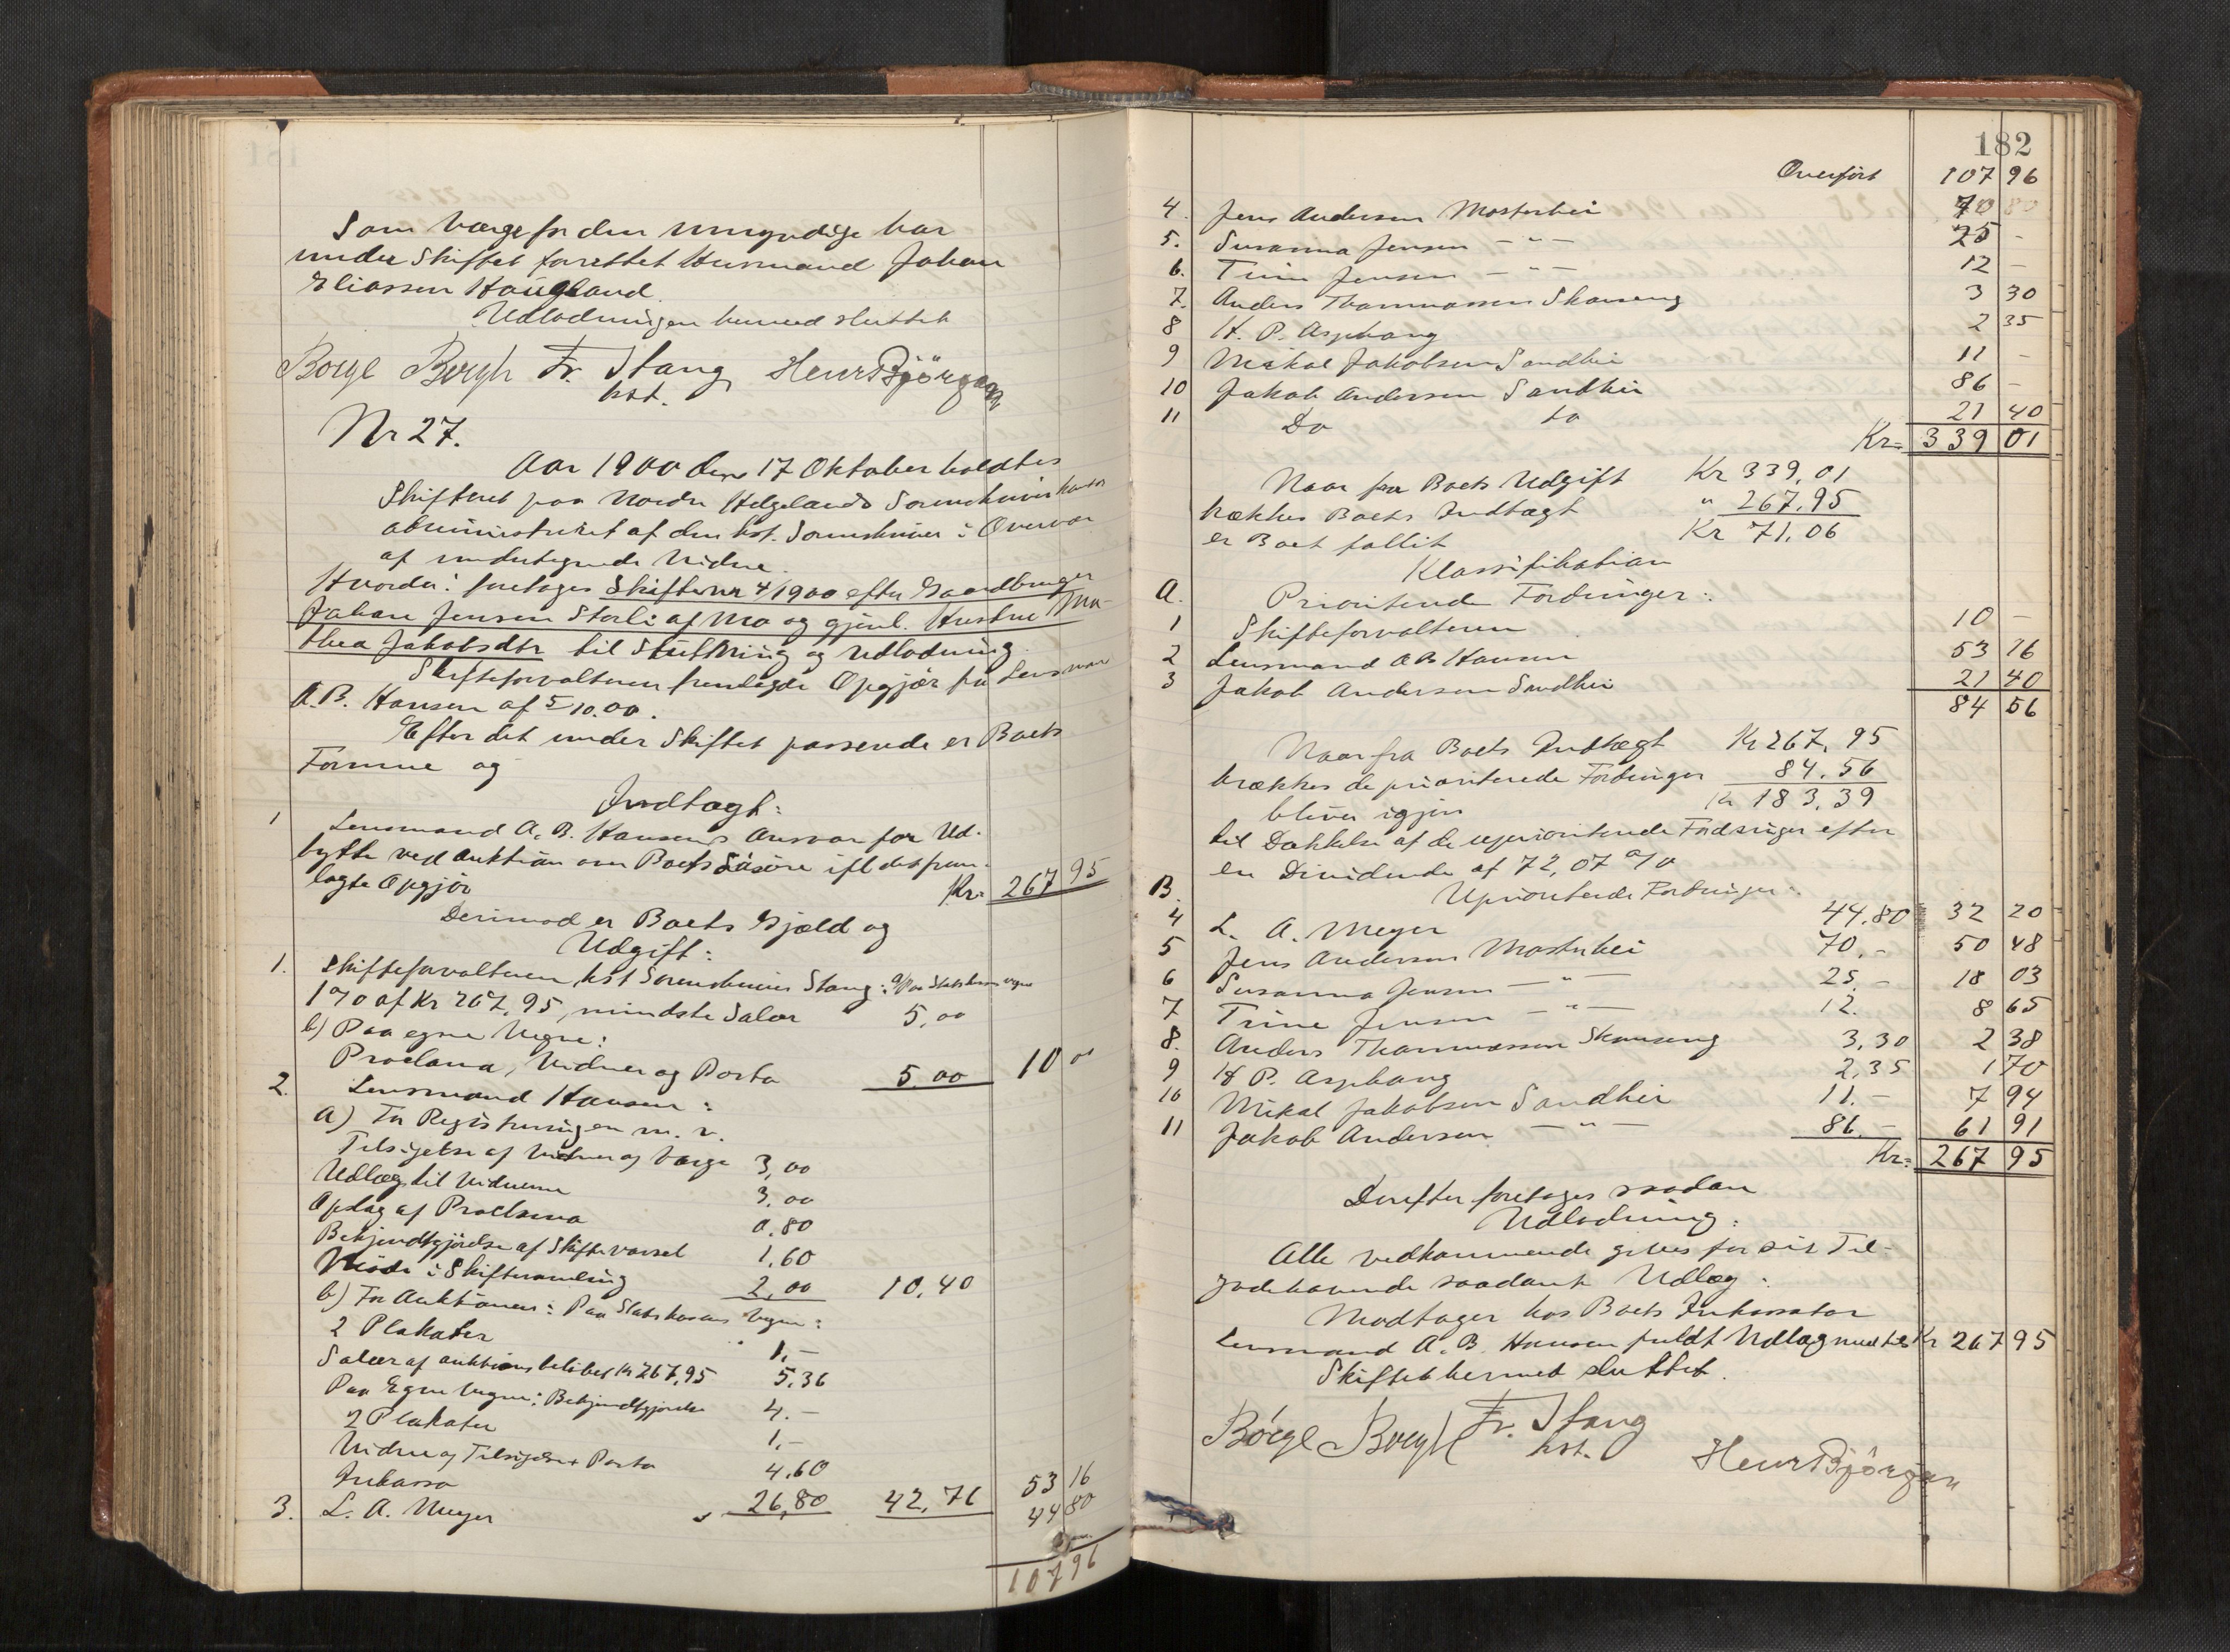 Som Værge for den umyndige har
under Skiftet forrettet Husmand Johan
Eliassen Haugland.
Udlodningen hermed sluttet
Børge Bergh Fr. Stang Henr Bjørgan
kst.
Nr 27.
Aar 1900 den 17 Oktober holdtes
Skifteret paa Nordre Helgelands Sorenskriverkontor
administreret af den kst. Sorenskriver i Overvær
af undertegnede Vidne.
Hvorda: foretoges Skifte nr 4/1900 efter Gaardbruger
Johan Jensen Storli af Mo og gjenl. Hustru Ma-
thea Jakobsdtr til Slutning og Udlodning.
Skifteforvalteren fremlagde Opgjør fra Lensmand
A. B. Hansen af 5/10.00.
Efter det under Skiftet passerede er Boets
Formue og
Indtægt:
1 Lensmand A. B. Hansens Ansvar for Ud-
bytte ved Auktion over Boets Løsøre ifl det frem-
lagte Opgjør Kr= 267 95
Derimod er Boets Gjæld og
Udgift:
1. Skifteforvalteren, kst Sorenskriver Stang: a/ Paa Statskassens Vegne
1 % af Kr 267,95, mindste Salær 5,00
b) Paa egne Vegne:
Proclama, Vidner og Porto 5.00 10 00
2. Lensmand Hansen:
a) For Registreringen m. v.
Tilsigelse af Vidner og Værge 3,00
Udlæg til Vidnerne 3.00
Opslag af Proclama 0.80
Bekjendtgjørelse af Skiftevarsel 1,60
Møde i Skiftesamling 2,00 10,40
b) For Auktionen: Paa Statskassens Vegne:
2 Plakater 1,-
Salær af auktionsbeløbet Kr 267,95 5,36
Paa Egne Vegne: Bekjendtgjørelse 4.-
2 Plakater 1,-
Vidner og Tilsigelse + Porto 4,60
Inkasso 26,80 42,76 53 16
3. L. A. Meyer 44 80
107 96
182
Overført 107 96
4. Jens Andersen Mosterhei 70
5. Susanna Jensen - " - 25 -
6. Trine Jensen - " - 12 -
7. Anders Thomassen Skanseng 3 30
8 H. P. Asphaug 2 35
9 Mikal Jakobsen Sandhei 11 -
10 Jakob Andersen Sandhei 86 -
11 Do to 21 40
Kr= 339 01
Naar fra Boets Udgift Kr 339,01
trækkes Boets Indtægt " 267,95
er Boet fallit Kr 71,06
Klassifikation
A. Prioriterede Fordringer:
1 Skifteforvalteren 10 -
2 Lensmand A B Hansen 53 16
3 Jakob Andersen Sandhei 21 40
84 56
Naar fra Boets Indtægt Kr 267,95
trækkes de prioriterede Fordringer 84.56
bliver igjen Kr 183,39
til Dækkelse af de uprioriterede Fordringer efter
en Dividende af 72,07 %
B. Uprioriterede Fordringer:
4 L. A. Meyer 44,80 32 20
5 Jens Andersen Mosterhei 70,- 50 48
6 Susanna Jensen - " - 25,- 18 03
7 Trine Jensen - " - 12. 8 65
8. Anders Thomassen Skanseng 3,30 2 38
9 H P. Asphaug 2,35 1 70
10 Mikal Jakobsen Sandhei 11.- 7 94
11 Jakob Andersen - " - 86.- 61 91
Kr= 267 95
Derefter foretoges saadan
Udlodning:
Alle vedkommende gives for sit Til-
godehavende saadant Udlæg:
Modtager hos Boets Inkassator
Lensmand A. B. Hansen fuldt Udlæg med til Kr 267 95
Skiftet hermed sluttet.
Børge Bergh Fr. Stang
kst.
Henr Bjørgan